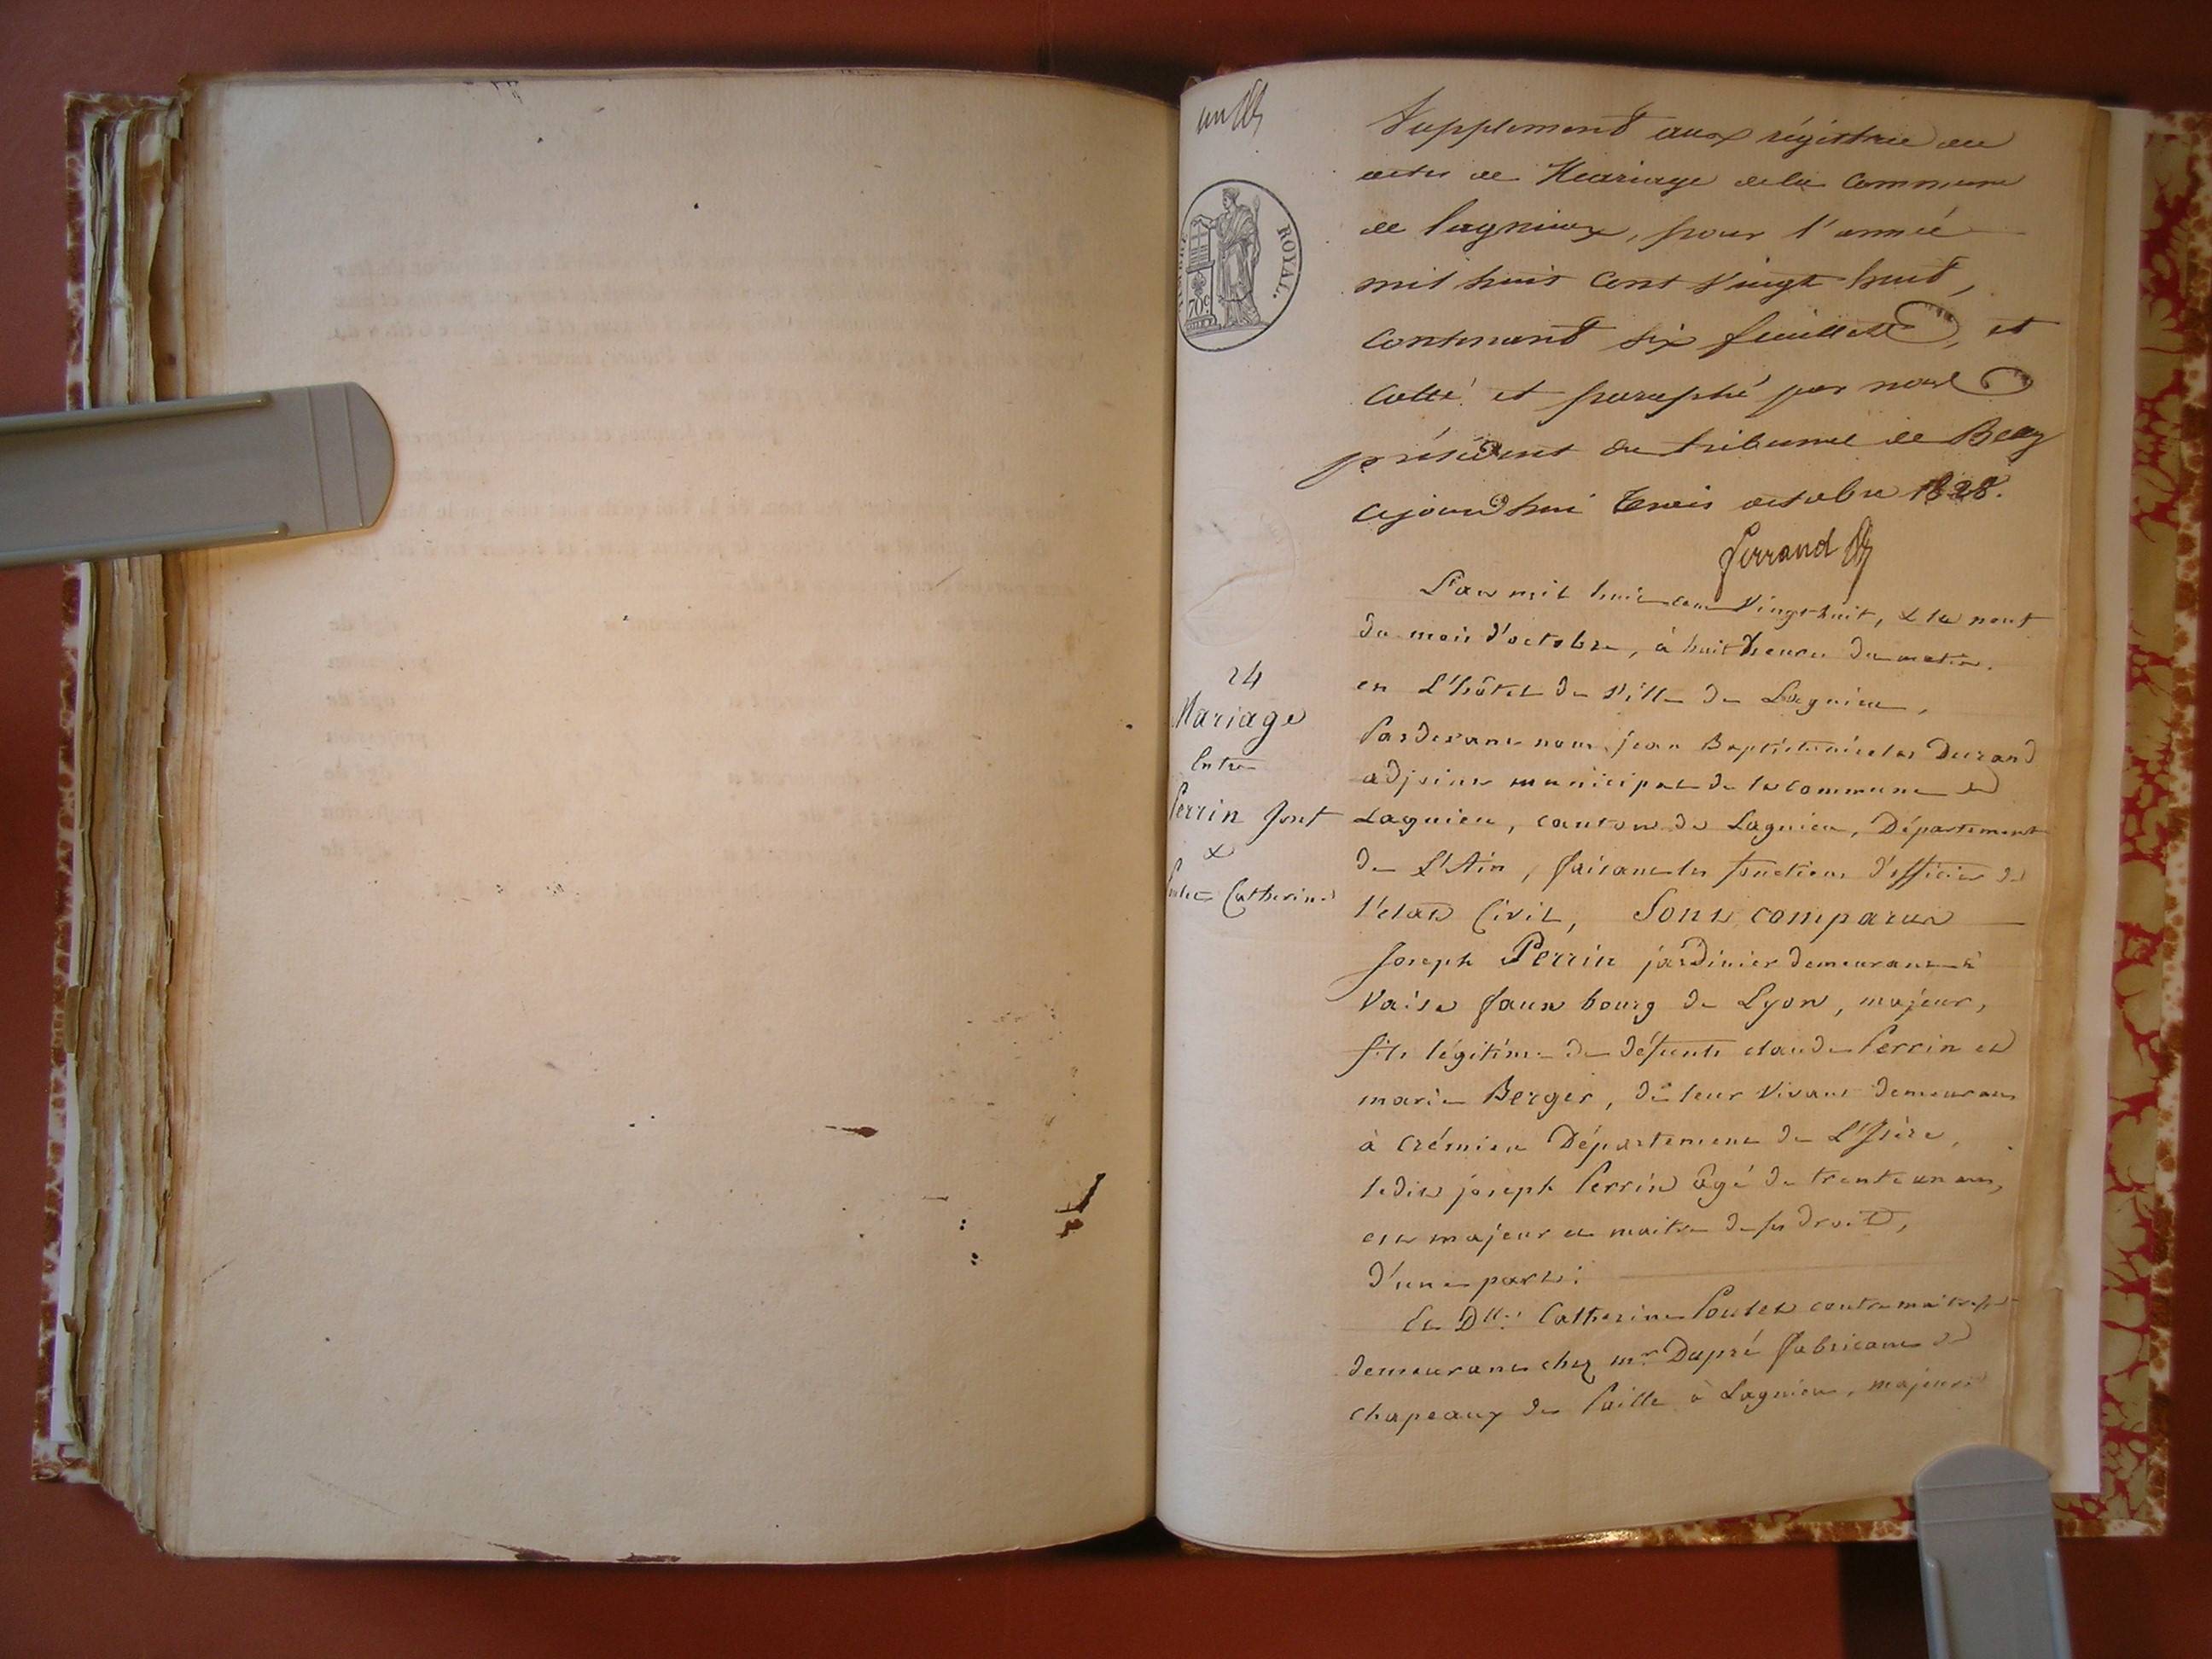 un
TIMBRE ROYAL.
70c
Supplement aux régistres des
actes de Mariage de la Commune
de lagnieux, pour l'année
mil huit cent vingt huit,
contenant six feuillets, et
cotté et paraphé par nous
président du tribunal de Belley
ajourd'hui trois octobre 1828.
Ferrand
L'an mil huit cent vingt huit, & le neuf
du mois d'octobre, à huit heures du matin.
en L'hôtel de Ville de Lagnieu,
Pardevant nous, jean Baptiste nicolas Durand
adjoint municipal de la commune de
Lagnieu, canton de Lagnieu, Département
de L'Ain, faisant les fonctions d'officier de
l'etat Civil, Sont comparus
Joseph Perrin jardinier demeurant à
Vaise faux bourg de Lyon, majeur,
fils légitime de défunts claude Perrin et
marie Berger, de leur vivant demeurans
à crémieu Département de L'Isère,
ledit joseph Perrin âgé de trente un ans,
est majeur et maitre de ses droits,
d'une part:
Et Dlle: Catherine Poulet contre maitresse
demeurant chez mr Dupré fabricant de
chapeaux de Paille à Lagnieu, majeure
24
Mariage
Entre
Perrin Josef
&
Poulet Catherine